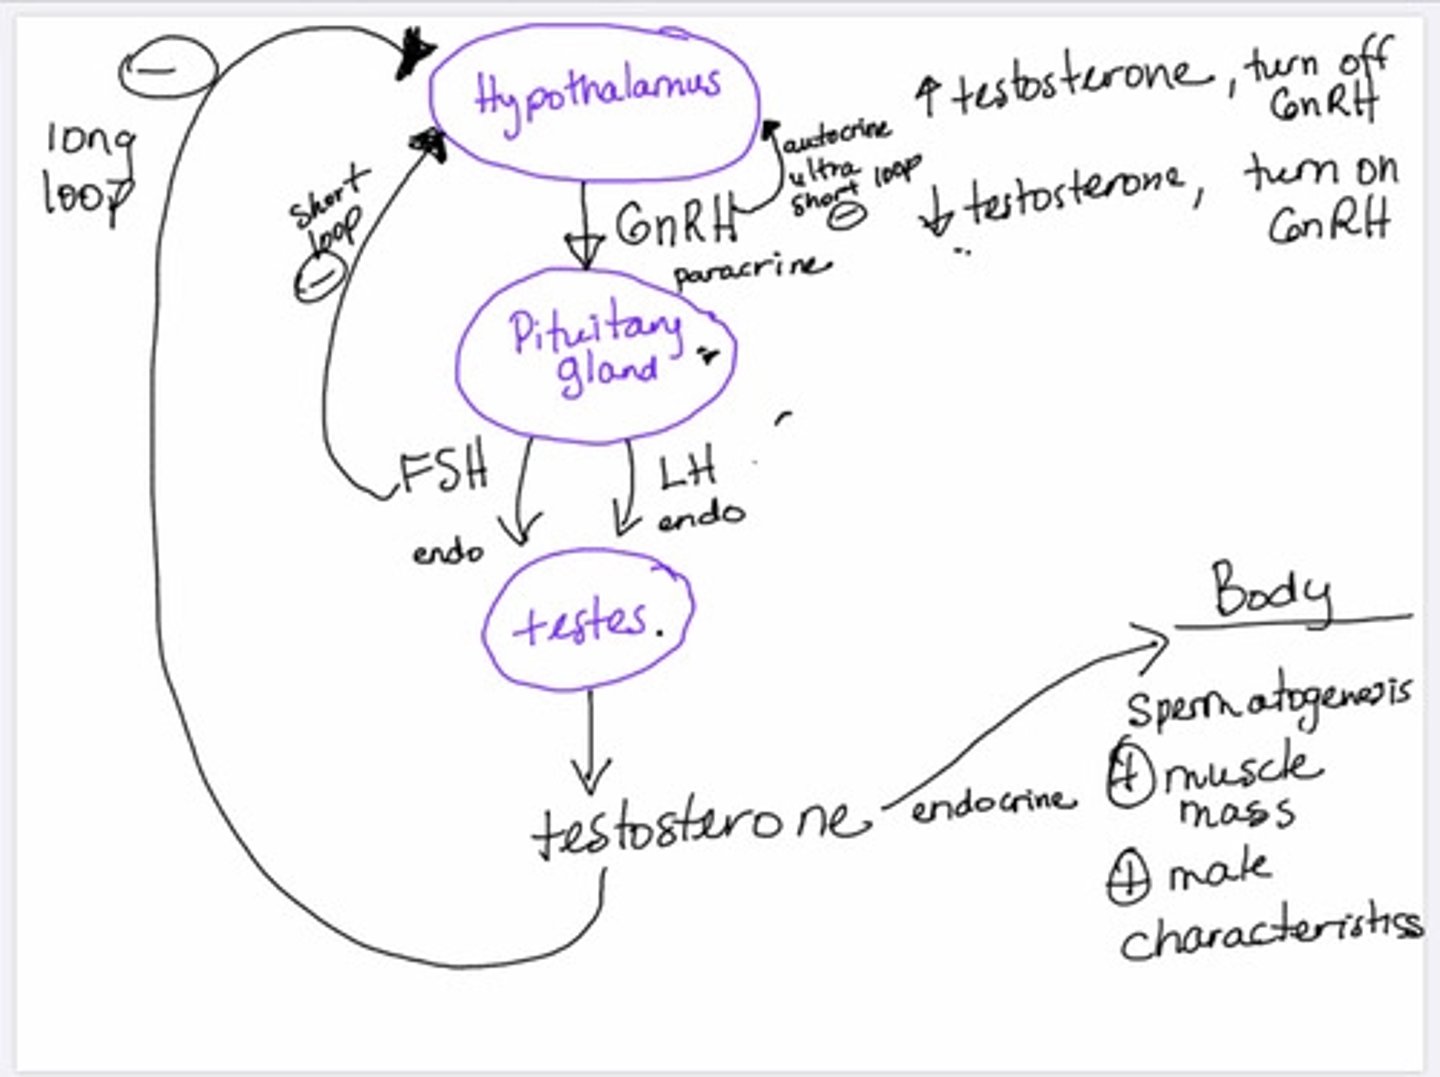 Hypothalamus
long
loop
short
loop
GnRH
paracrine
autocrine
ultra
short loop
↑ testosterone, turn off
GnRH
↓ testosterone, turn on
GnRH
Pituitary
gland
FSH
endo
LH
endo
testes.
testosterone
endocrine
Body
Spermatogenesis
⊕ muscle
mass
⊕ male
characteristics